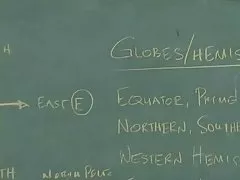 GLOBES/HEMIS
EAST E EQUATOR, PRIME
NORTHERN, SOUTHE
WESTERN HEMIS
TH NORTH POLE